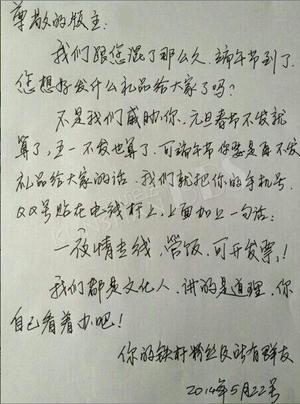 尊敬的版主：
我们跟您混了那么久，端午节到了，
您想好发什么礼品给大家了吗？
不是我们威胁你，元旦春节不发就
算了，五一不发也算了，可端午节你要是再不发
礼品给大家的话，我们就把你的手机号、
QQ号贴在电线杆上，上面加上一句话：
一夜情专线，管饭，可开发票！
我们都是文化人，讲的是道理，你
自己看着办吧！
你的铁杆粉丝及所有群友
2014年5月22号